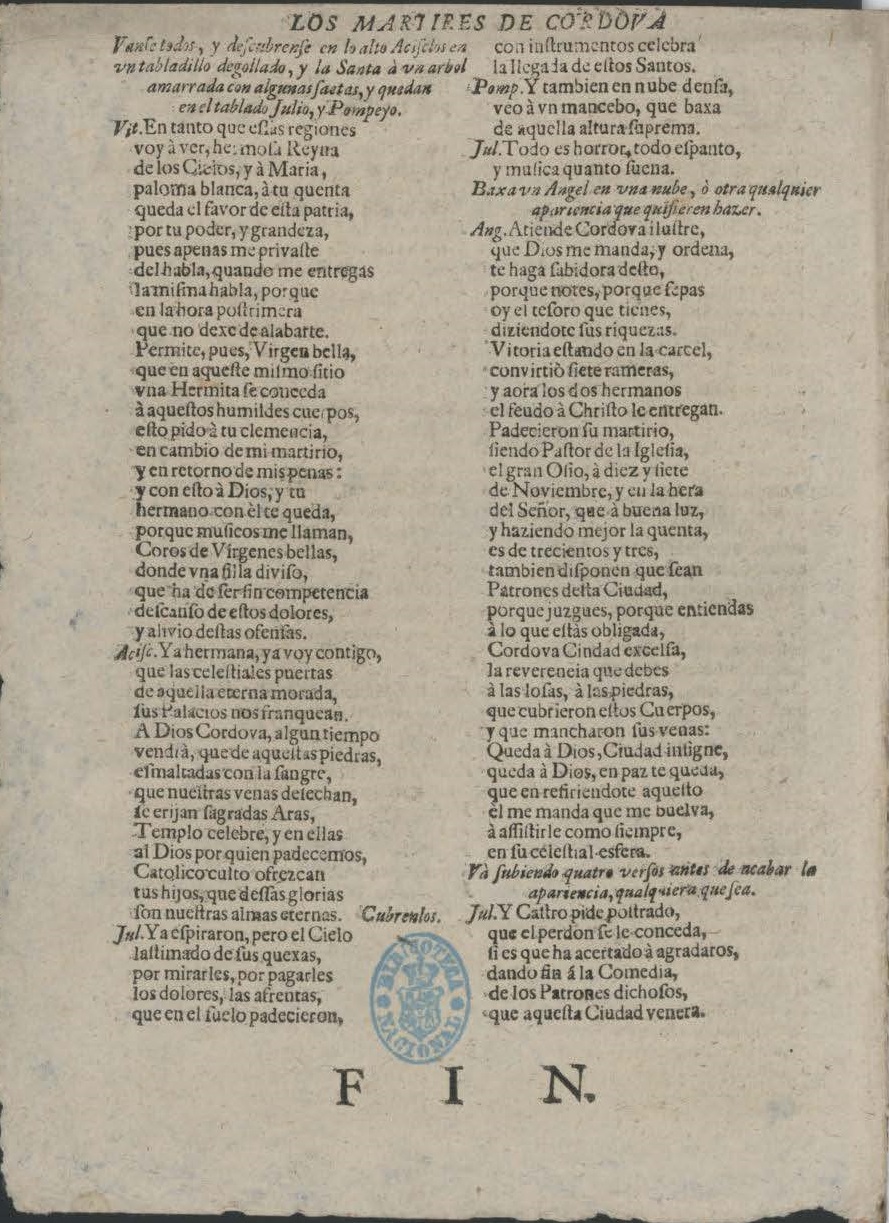 LOS MARTIRES DE CORDOVA
Vanse todos, y descubrense en lo alto Acisclos en
vn tabladillo degollado, y la Santa à vn arbol
amarrada con algunas saetas, y quedan
en el tablado Julio, y Pompeyo.
Vit. En tanto que estas regiones
voy à ver, hermosa Reyna
de los Cielos, y à Maria,
paloma blanca, à tu quenta
queda el favor de esta patria,
por tu poder, y grandeza,
pues apenas me privaste
del habla, quando me entregas
la misma habla, porque
en la hora postrimera
que no dexe de alabarte.
Permite, pues, Virgen bella,
que en aqueste mismo sitio
vna Hermita se conceda
à aquestos humildes cuerpos,
esto pido à tu clemencia,
en cambio de mi martirio,
y en retorno de mis penas:
y con esto à Dios, y tu
hermano con èl te queda,
porque musicos me llaman,
Coros de Vírgenes bellas,
donde vna silla diviso,
que ha de ser sin competencia
descanso de estos dolores,
y alivio destas ofensas.
Acisc. Ya hermana, ya voy contigo,
que las celestiales puertas
de aquella eterna morada,
sus Palacios nos franquean.
A Dios Cordova, algun tiempo
vendrà, que de aquestas piedras,
esmaltadas con la sangre,
que nuestras venas desechan,
se erijan sagradas Aras,
Templo celebre, y en ellas
al Dios por quien padecemos,
Catolico culto ofrezcan
tus hijos, que dessas glorias
son nuestras almas eternas. Cubrenlos.
Jul. Ya espiraron, pero el Cielo
lastimado de sus quexas,
por mirarles, por pagarles
los dolores, las afrentas,
que en el suelo padecieron,
con instrumentos celebra
la llegada de estos Santos.
Pomp. Y tambien en nube densa,
veo à vn mancebo, que baxa
de aquella altura suprema.
Jul. Todo es horror, todo espanto,
y musica quanto suena.
Baxa vn Angel en vna nube, ò otra qualquier
apariencia que quisieren hazer.
Ang. Atiende Cordova ilustre,
que Dios me manda, y ordena,
te haga sabidora desto,
porque notes, porque sepas
oy el tesoro que tienes,
diziendote sus riquezas.
Vitoria estando en la carcel,
convirtiò siete rameras,
y aora los dos hermanos
el feudo à Christo le entregan.
Padecieron su martirio,
siendo Pastor de la Iglesia,
el gran Osio, à diez y siete
de Noviembre, y en la hera
del Señor, que à buena luz,
y haziendo mejor la quenta,
es de trecientos y tres,
tambien disponen que sean
Patrones desta Ciudad,
porque juzgues, porque entiendas
à lo que estàs obligada,
Cordova Cindad excelsa,
la reverencia que debes
à las losas, à las piedras,
que cubrieron estos Cuerpos,
y que mancharon sus venas:
Queda à Dios, Ciudad insigne,
queda à Dios, en paz te queda,
que en refiriendote aquesto
el me manda que me buelva,
à assistirle como siempre,
en su celestial esfera.
Và subiendo quatro versos antes de acabar la
apariencia, qualquiera que sea.
Jul. Y Castro pide postrado,
que el perdon se le conceda,
si es que ha acertado à agradaros,
dando fin á la Comedia,
de los Patrones dichosos,
que aquesta Ciudad venera.
BIBLIOTECA NACIONAL
F I N.